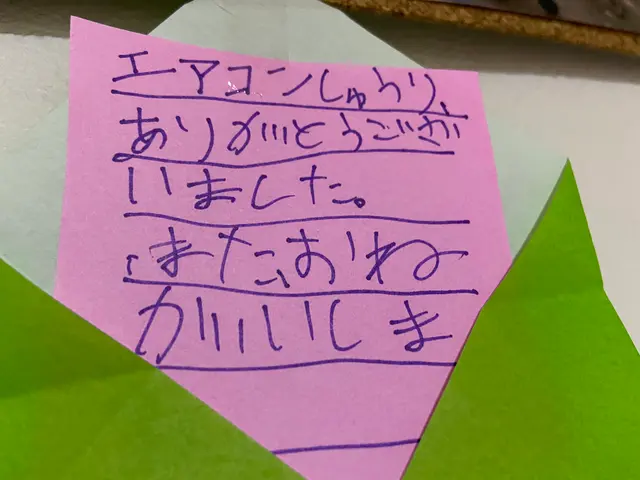 エアコンしゅうり、
ありがとうござ
いました。
またおね
がいしま